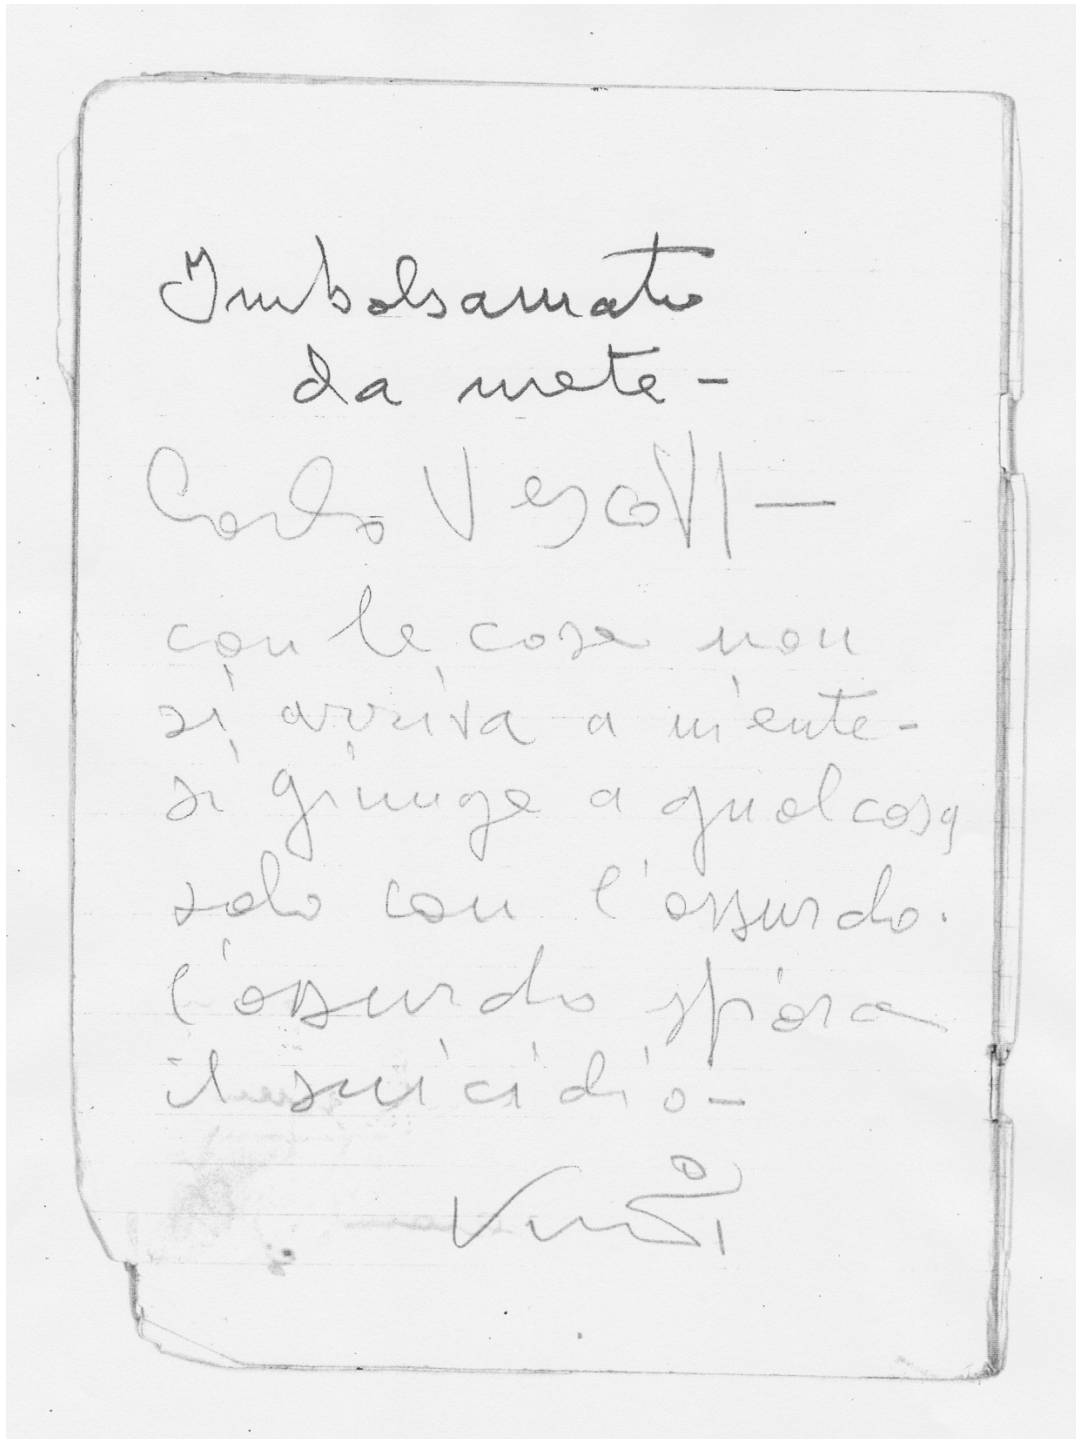 Imbalsamato
da mete -
Carlo VescoVI -
con le cose non
si arriva a niente -
si giunge a qualcosa
solo con l'assurdo.
l'assurdo spara
il suicidio -